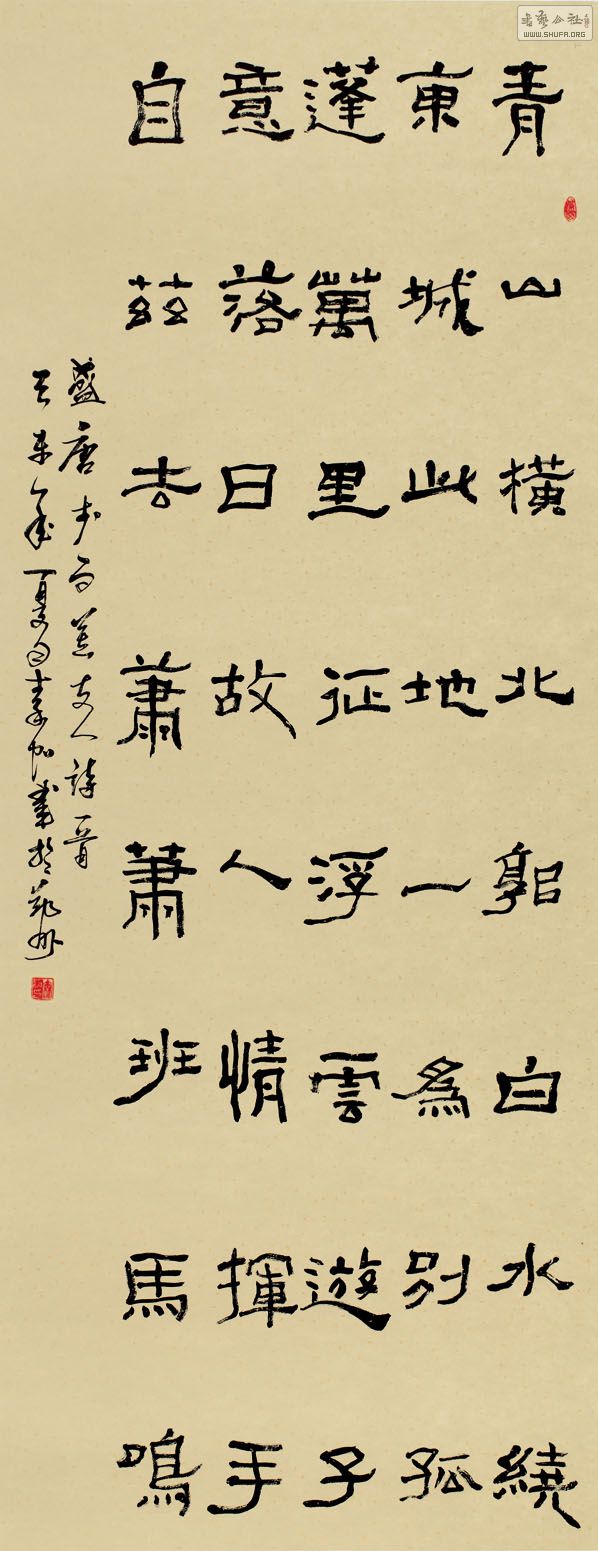 青山橫北郭白水繞
東城此地一為別孤
蓬萬里征浮雲遊子
意落日故人情揮手
自茲去蕭蕭班馬鳴
盛唐李白送友人詩一首
年夏月書於
书艺公社
WWW.SHUFA.ORG